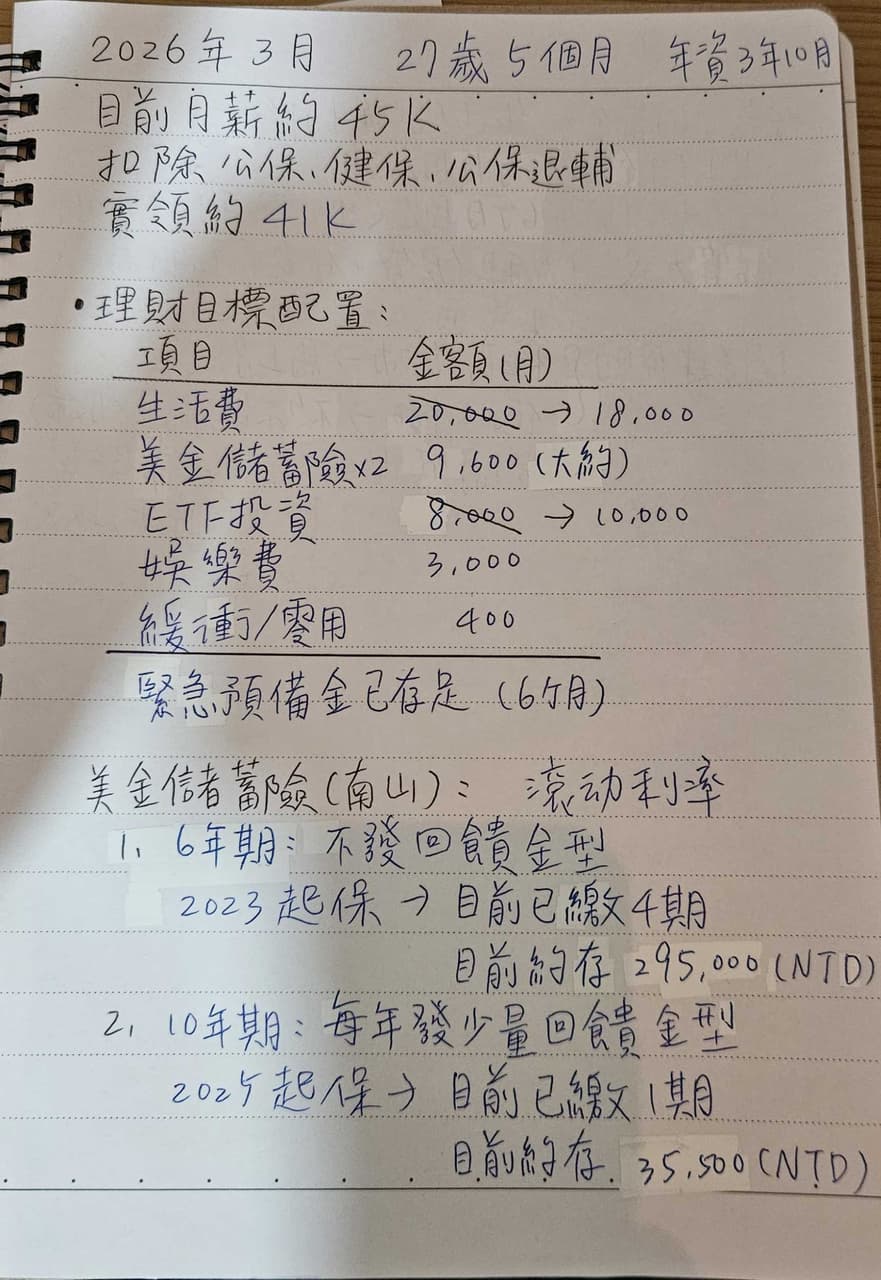 2026年3月 27歲5個月 年資3年10月
目前月薪約45K
扣除公保、健保、公保退輔
實領約41K
•理財目標配置：
項目 金額(月)
生活費 20,000 → 18,000
美金儲蓄險x2 9,600(大約)
ETF投資 8,000 → 10,000
娛樂費 3,000
緩衝/零用 400
緊急預備金已存足(6ケ月)
美金儲蓄險(南山)： 滾动利率
1. 6年期：不發回饋金型
2023起保→目前已繳4期
目前約存 295,000(NTD)
2. 10年期：每年發少量回饋金型
2025起保→目前已繳1期
目前約存 35,500(NTD)